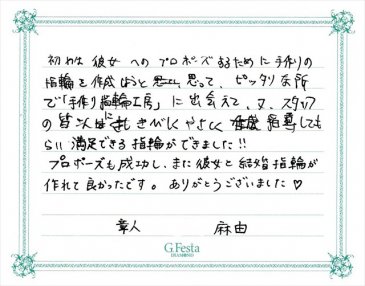 初めは 彼女 への プロポーズ するために 手作りの
指輪を作成しようと 思って、ピッタリな所
で「手作り指輪工房」に出会えて、又、スタッフ
の皆に きびしく やさしく 指導しても
らい 満足できる指輪ができました!!
プロポーズも成功し、また彼女と結婚指輪が
作れて良かったです。ありがとうございました♡
章人 麻由
G.Festa
DIAMOND